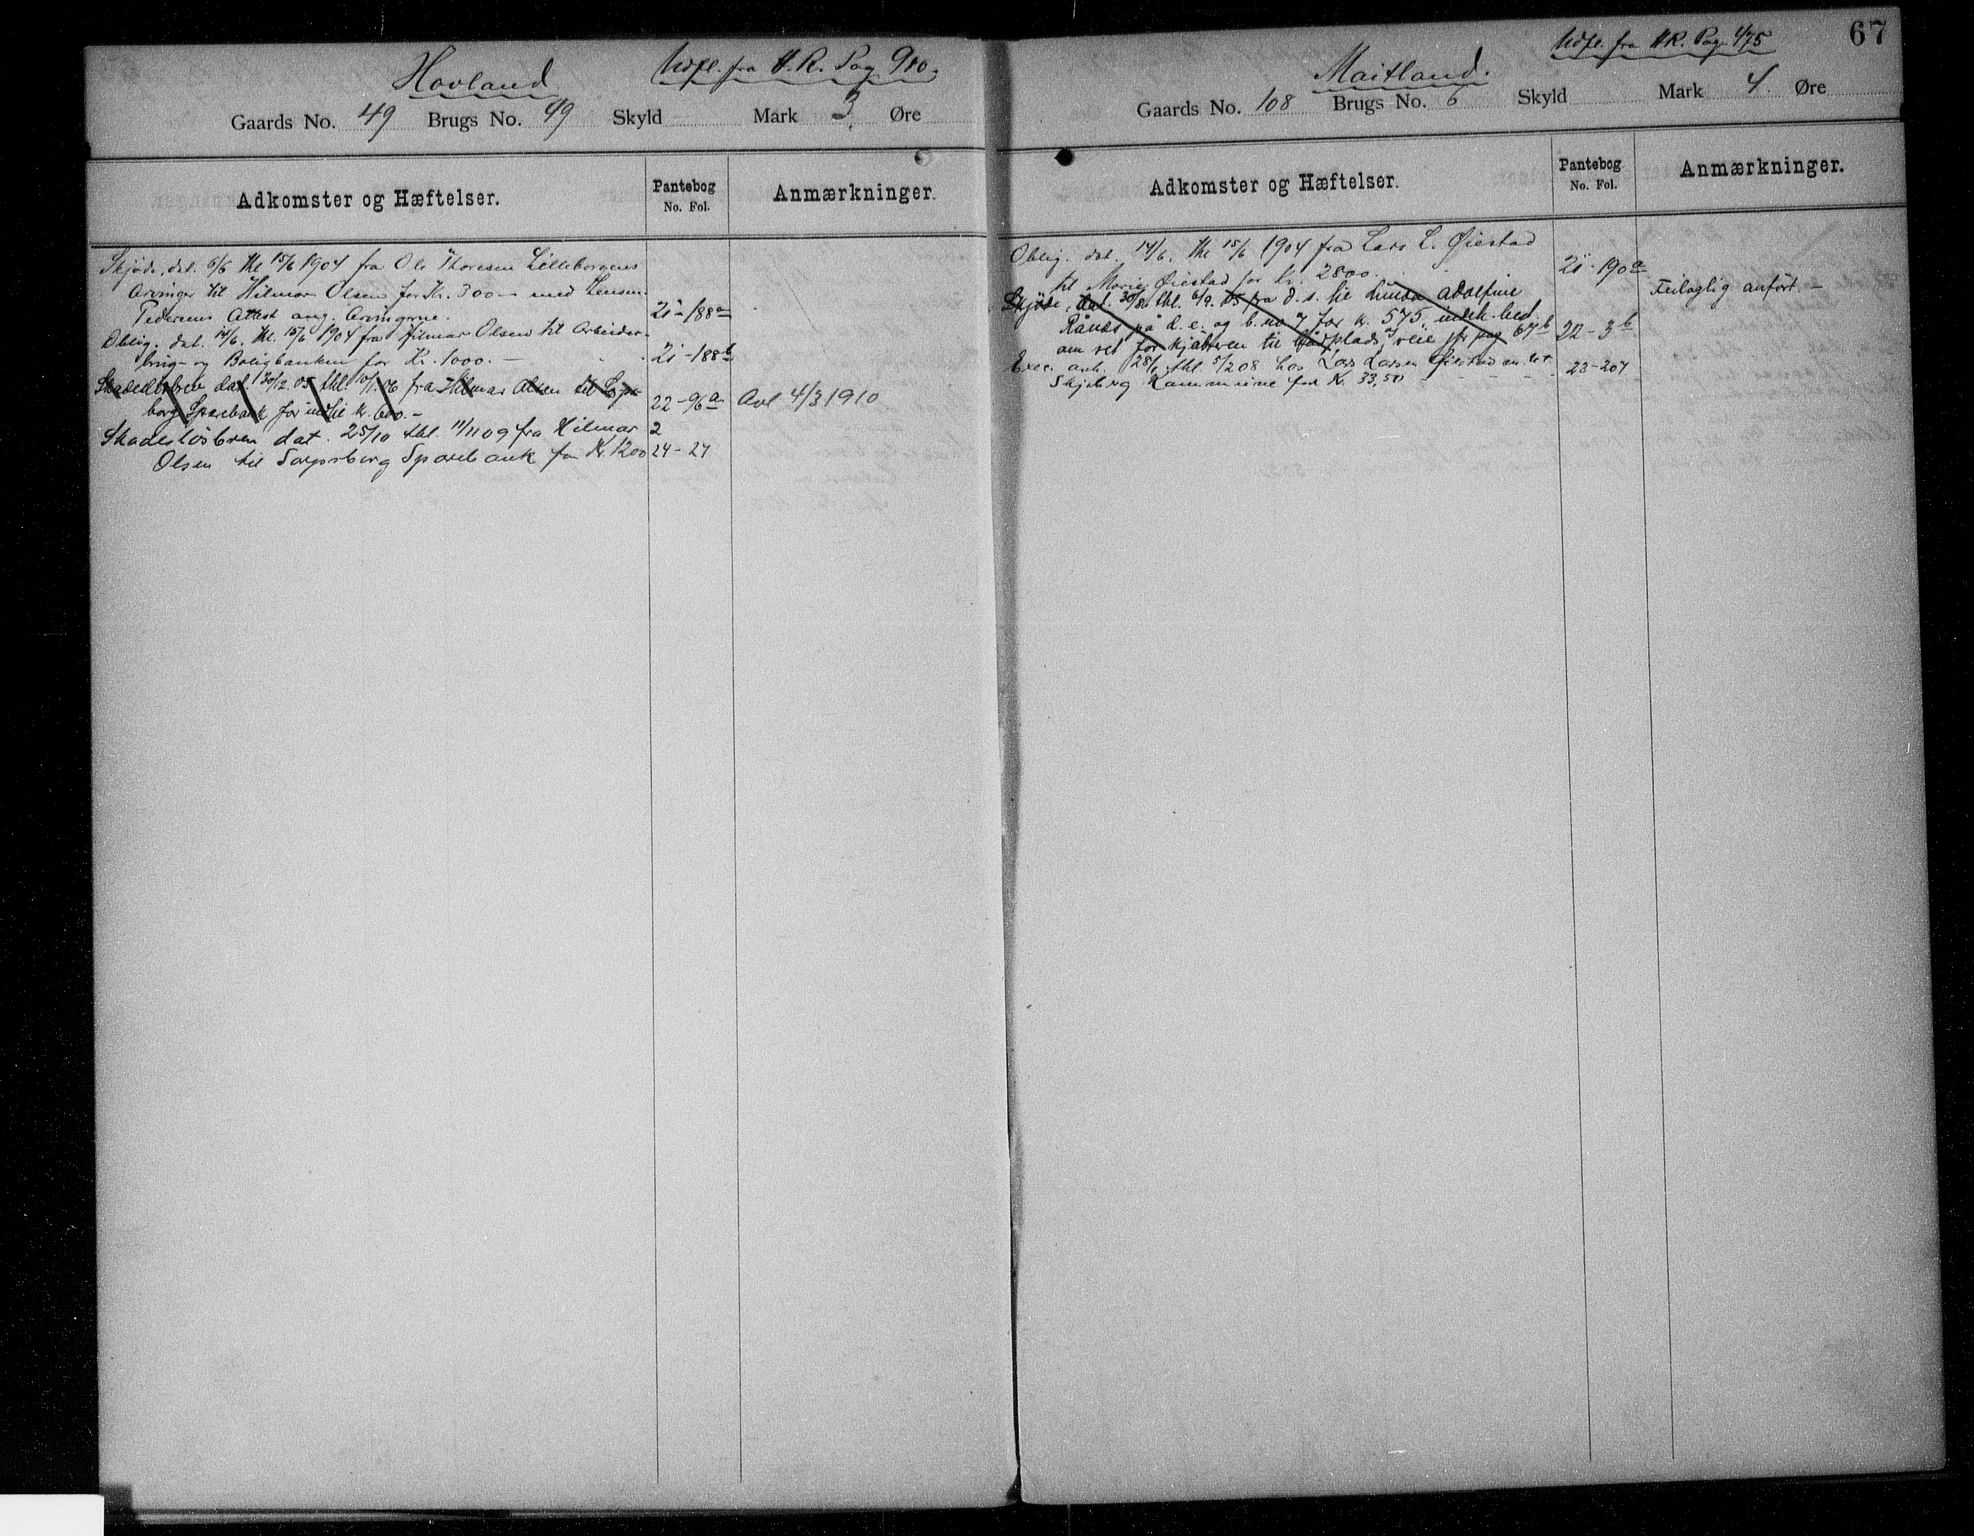 Hovland
Udfl. fra H. R. Pag 910.
Gaards No. 49 Brugs No. 99 Skyld Mark 3 Øre
Adkomster og Hæftelser.
Pantebog
No. Fol.
Anmærkninger.
Skjøde, dat. 6/6 thl 15/6 1904 fra Ole Thoresen Lilleborgens
Arvinger til Hilmar Olsen for Kr. 300 — med Lensm.
Pedersens Attest ang. Arvingerne. 21-188a
Oblig. dat. 14/6. thl. 15/6 1904 fra Hilmar Olsen til Arbeider-
brug- og Boligbanken for Kr. 1000. — 21-188b
Skadeslbrev dat. 30/12 05 thl. 10/1 06 fra Hilmar Olsen til Sarps-
borg Sparebank for indtil k. 600. – 22-96a Avl 4/3 1910
Skadesløsbrev dat. 25/10 thl. 11/11 09 fra Hilmar 2
Olsen til Sarpsborg Sparebank for Kr. 1200 24-27
67
Udfl. fra H R. Pag. 475
Maitland.
Gaards No. 108 Brugs No. 6 Skyld Mark 4. Øre
Adkomster og Hæftelser.
Pantebog
No. Fol.
Anmærkninger.
Oblig. dat. 14/6. thl 15/6 1904 fra Lars L. Øiestad
til Marie Øiestad for Kr. 2800. 21-190a
Skjøde, dat. 30/8. thl. 6/9. 05 fra d. s. til Linda Adolfine Feilaglig anført. –
Rånås på d. e. og b. no 7 for k. 575 indeh. bed.
om ret for kjøberen til plads, veie jfr pag 67b 22-3b
Exec. anh. 28/1 thl. 5/2 08 hos Lars Larsen Øiestad
Skjeberg Kommune for Kr. 33,50 23-207